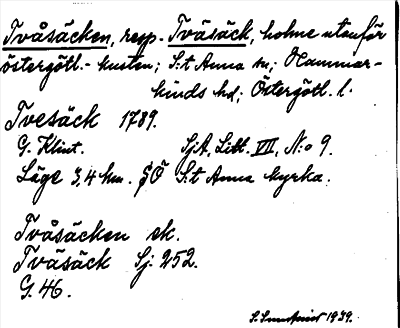 Tvåsäcken, resp. Tväsäck, holme utanför
östergötl.-kusten; S:t Anna sn; Hammar-
kinds hd; Östergötl. l.
Tvesäck 1789.
G. Klint. SjA, Litt. VII, N:o 9.
Läge 3,4 km. SÖ S:t Anna kyrka.
Tvåsäcken ek.
Tväsäck Sj. 252.
G. 46.
1939.